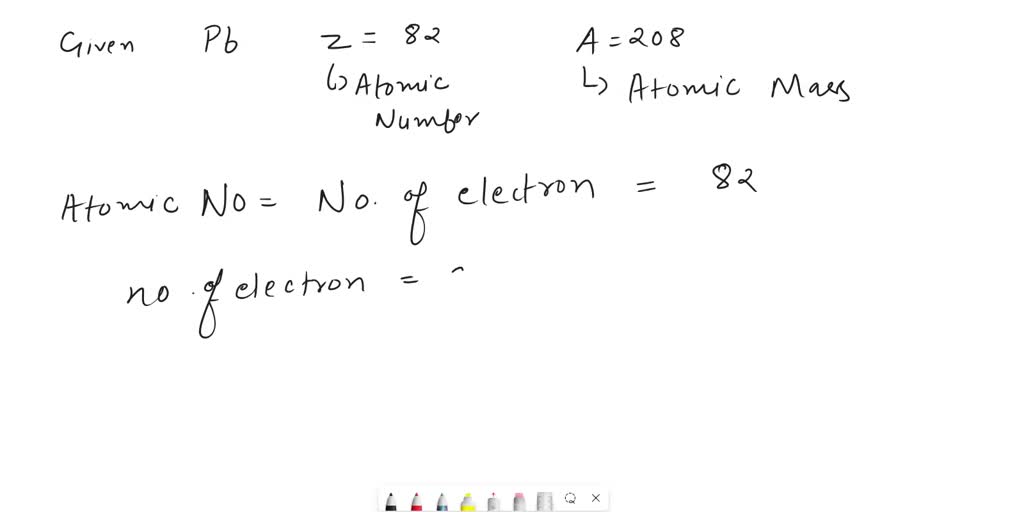 Given Pb z = 82 A = 208
↳ Atomic Number ↳ Atomic Mass
Atomic No = No. of electron = 82
no. of electron =